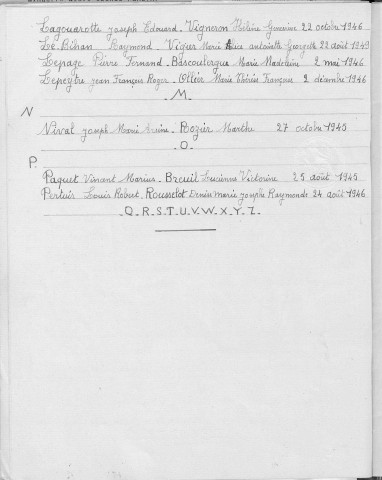 Lagouarotte Joseph Edouard. Vigneron Hélène Germaine 22 octobre 1946
Le Bihan Raymond Viguer Marie Antoinette Georgette 22 août 1949
Lepage Pierre Fernand. Bascoulergue Marie Madeleine 2 mai 1946
Lepeytre Jean François Roger. Ollier Marie Thérèse Françoise 2 décembre 1946
. M.
N
Nirval Joseph Marie. Bozier Marthe 27 octobre 1945
. O.
P.
Paquet Vincent Marius. Breuil Lucienne Victorine 25 août 1945
Pertuis Louis Robert. Rousselot Denise Marie Josephe Raymonde 24 août 1946
.Q.R.S.T.U.V.W.X.Y.Z.